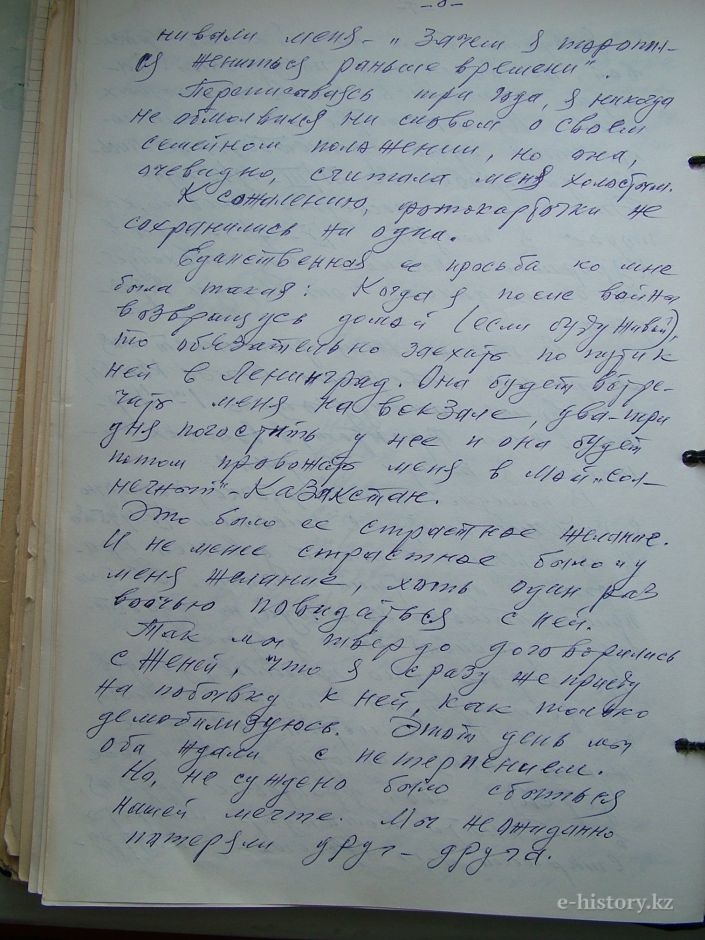 нивали меня – „Зачем я торопи-
ся жениться раньше времени".
Переписываясь три года, я никогда
не обмолвился ни словом о своем
семейном положении, но она,
очевидно, считала меня холостым.
К сожалению, фотокарточки не
сохранились ни одна.
Единственная ее просьба ко мне
была такая: Когда я после войны
возвращусь домой (если буду живой),
то обязательно заехить по пути к
ней в Ленинград. Она будет встре-
чать меня на вокзале, два-три
дня погостить у нее и она будет
потом провожать меня в мой „сол-
нечный" – Казахстан.
Это было ее страстное желание.
И не менее страстное было и у
меня желание, хоть один раз
воочью повидаться с ней.
Так мы твердо договорились
с Женей, что я сразу же приеду
на побывку к ней, как только
демобилизуюсь. Этот день мы
оба ждали с нетерпением.
Но, не суждено было сбыться
нашей мечте. Мы неожиданно
потеряли друг – друга.
e-history.kz